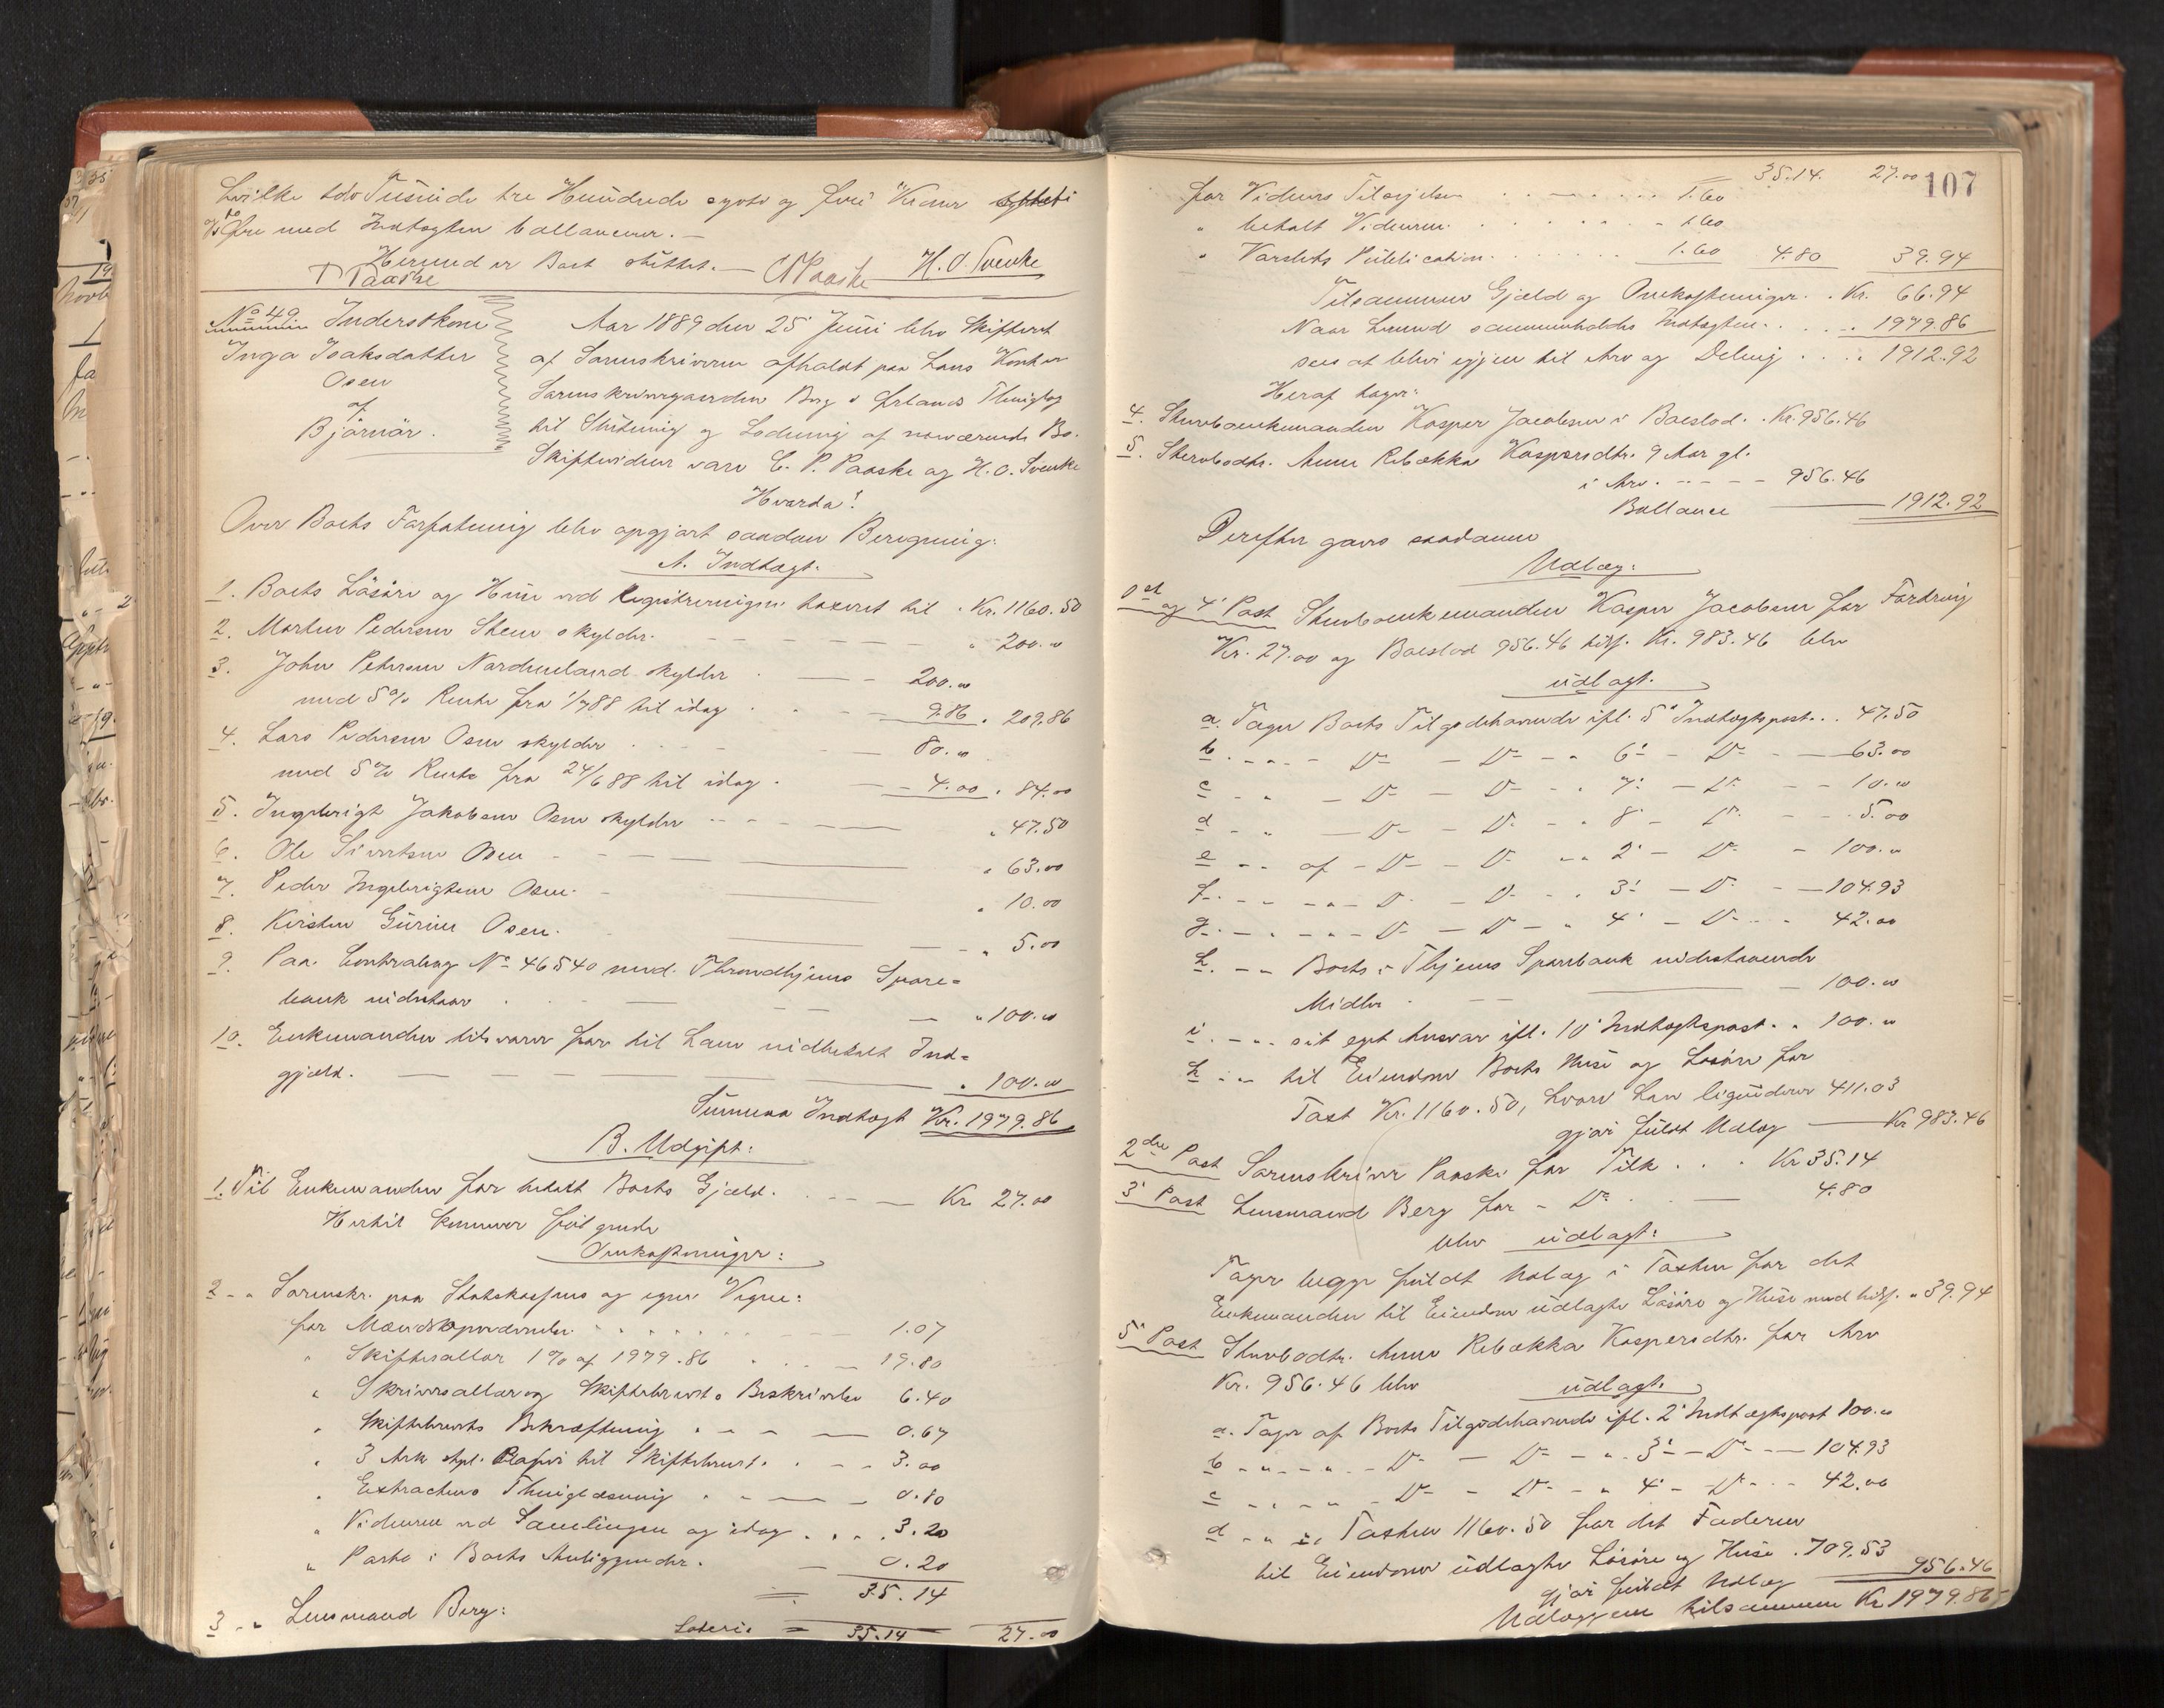 hvilke to Tusinde tre Hundrede otte og fire Kroner
og to Øre med Indtægten ballancerer. —
Hermed er Boet sluttet. — C P Paaske H. O. Svenke
P Paaske
No 49 Inderstkone
Inga Isaksdatter
Osen
af
Bjørnør.
Aar 1889 den 25' Juni blev Skifteret
af Sorenskriveren afholdt paa hans Kontor
Sorenskrivergaarden Berg i Ørlands Thinglag
til Slutning og Lodning af nærværende Bo.
Skiftevidner vare C. P. Paaske og H. O. Svenke
Hvorda!
Over Boets Forfatning blev opgjort saadan Beregning:
A. Indtægt:
1. Boets Løsøre og Huse ved Registreringen taxeret til . Kr. 1160.50
2. Morten Pedersen Sten skylder. " 200.00
3. John Petersen Nordmeland skylder . 200.00
med 5% Rente fra 1/7 88 til idag . . 9.86 . 209.86
4. Lars Pedersen Osen skylder . 80.00
med 5% Rente fra 24/6 88 til idag . 4.00 . 84.00
5. Ingebrigt Jakobsen Osen skylder " 47.50
6. Ole Sivertsen Osen " 63.00
7. Peder Ingebrigtsen Osen. " 10.00
8. Kirsten Gurine Osen. " 5.00
9. Paa Contrabog No 46540 med Throndhjems Spare=
bank indestaar " 100.00
10. Enkemanden tilsvarer for til ham indbetalt Ind=
gjæld. " 100.00
Summa Indtægt Kr. 1979.86
B. Udgift:
1. Til Enkemanden for betalt Boets Gjæld. Kr. 27.00
Hertil kommer følgende
Omkostninger:
2 - " Sorenskr. paa Statskassens og egne Vegne:
for 1.07
" Skiftesallar 1% af 1979.86 19.80
" Skriversallar og Skiftebrevets Beskrivelse 6.40
" Skiftebrevets Bekræftning 0.67
" 3 Ark stpl. Papir til Skiftebrevet. 3.00
" Extractens Thinglæsning 0.80
" Vidnerne ved Samlingen og idag 3.20
" Porto i Boets Anliggender. 0.20
35.14
3 - " Lensmand Berg:
Lateris 35.14 27.00
35.14. 27.00 107
for Vidners Tilsigelse 1.60
" betalt Vidnerne 1.60
" Varslets Publication 1.60 4.80 39.94
Tilsammen Gjæld og Omkostninger . Kr. 66.94
Naar hermed sammenholdes Indtægten 1979.86
sees at blive igjen til Arv og Deling 1912.92
Heraf tager:
4. Stervboenkemanden Kasper Jacobsen i Boeslod. Kr. 956.46
5. Stervbodtr. Anne Rebækka Kaspersdtr. 9 Aar gl.
i Arv. 956.46
Ballance 1912.92
Derefter gaves saadanne
Udlæg:
og 4' Post Stervboenkemanden Kasper Jacobsen for Fordring
Kr. 27.00 og Boeslod 956.46 tils. Kr. 983.46 blev
udlagt.
a. Tager Boets Tilgodehavende ifl. 5' Indtægtspost 47.50
b. - " - Do - Do - " 6' - Do - 63.00
c. - " - Do - Do - " 7' - Do - 10.00
d. - " - Do - Do - " 8' - Do - 5.00
e. - " af - Do - Do - " 2' - Do - 100.00
f. - " - " - Do - Do - " 3' - Do - 104.93
g. - " - " - Do - Do - " 4' - Do - 42.00
h. - " Boets i Thjems Sparebank indestaaende
Midler 100.00
i. - " sit eget Ansvar ifl. 10' Indtægtspost 100.00
k. - " til Eiendom Boets Huse og Løsøre for
Taxt Kr. 1160.50, hvori han liqviderer 411.03
gjør fuldt Udlæg Kr 983.46
2den Post Sorenskriver Paaske for Tilk. Kr 35.14
3' Post Lensmand Berg for - Do 4.80
blev udlagt:
Tager begge fuldt Udlæg i Taxten for det
Enkemanden til Eiendom udlagte Løsøre og Huse med tils. " 39.94
5' Post Stervbodtr. Anne Rebækka Kaspersdtr. for Arv
Kr. 956.46 blev udlagt.
a. Tager af Boets Tilgodehavende ifl. 2' Indtægtspost 100.00
b. - " - " - Do - Do - " 3' - Do - 104.93
c. - " - " - Do - Do - " 4' - Do - 42.00
d. - " i Taxten 1160.50 for det Faderen
til Eiendom udlagte Løsøre og Huse 709.53
gjør fuldt Udlæg 956.46
Udlæggene tilsammen Kr 1979.86